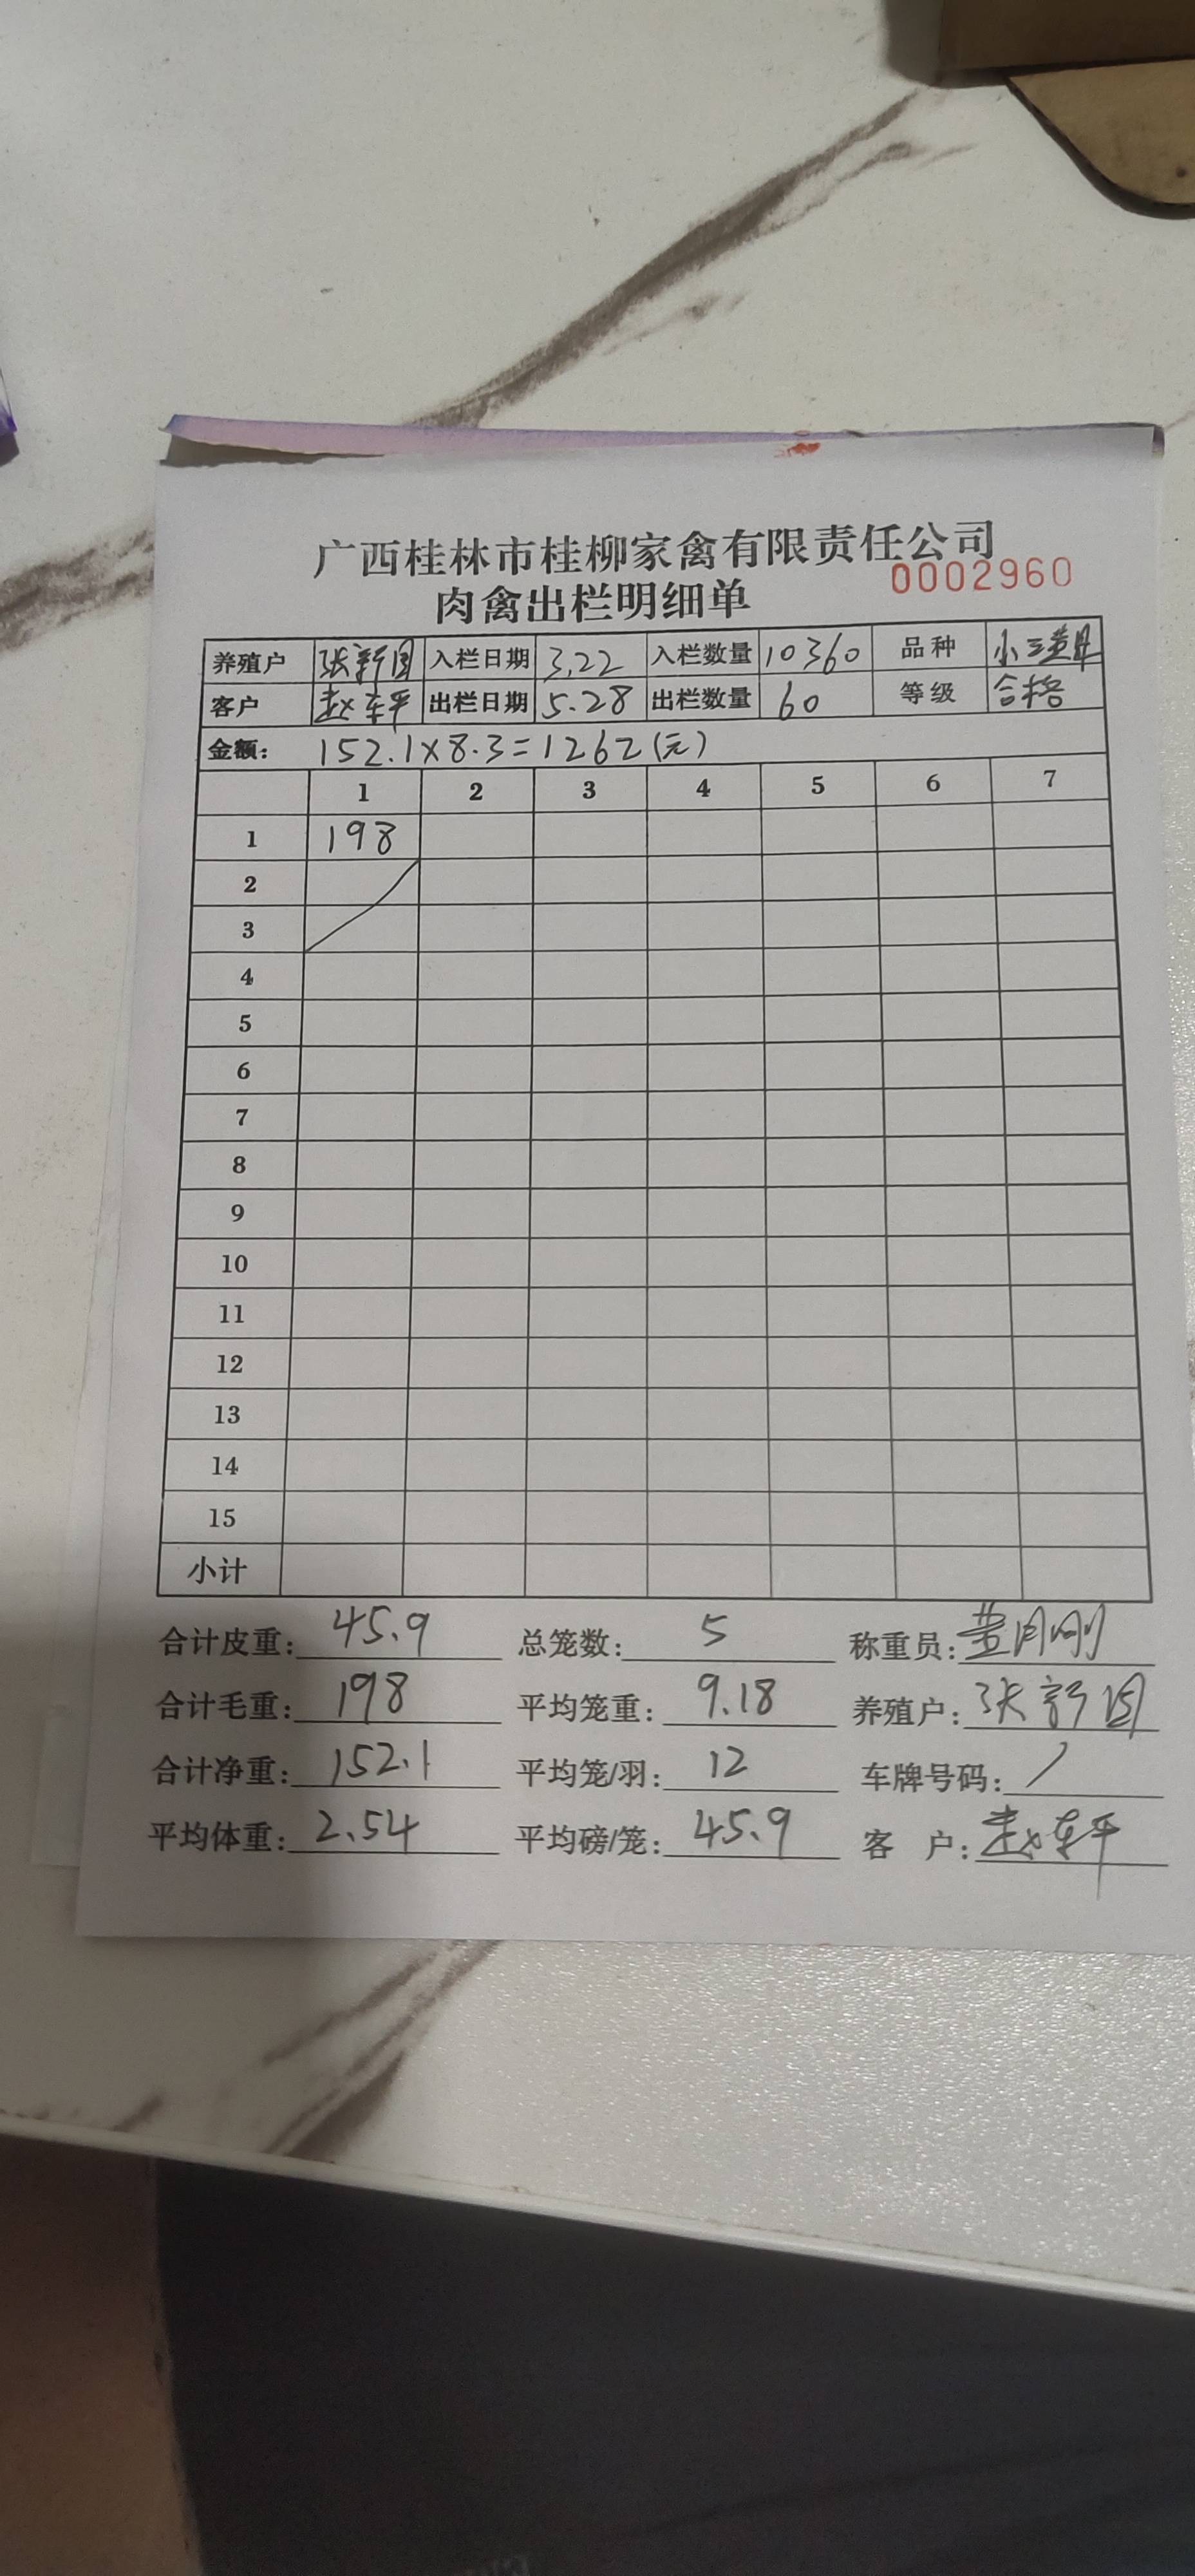 广西桂林市桂柳家禽有限责任公司
肉禽出栏明细单
0002960
养殖户 张新国 入栏日期 3.22 入栏数量 10360 品种 小三黄
客户 赵东平 出栏日期 5.28 出栏数量 60 等级 合格
金额: 152.1×8.3=1262(元)
1 2 3 4 5 6 7
1 198
2
3
4
5
6
7
8
9
10
11
12
13
14
15
小计
合计皮重: 45.9 总笼数: 5 称重员:
合计毛重: 198 平均笼重: 9.18 养殖户: 张新国
合计净重: 152.1 平均笼/羽: 12 车牌号码: /
平均体重: 2.54 平均磅/笼: 45.9 客 户: 赵东平